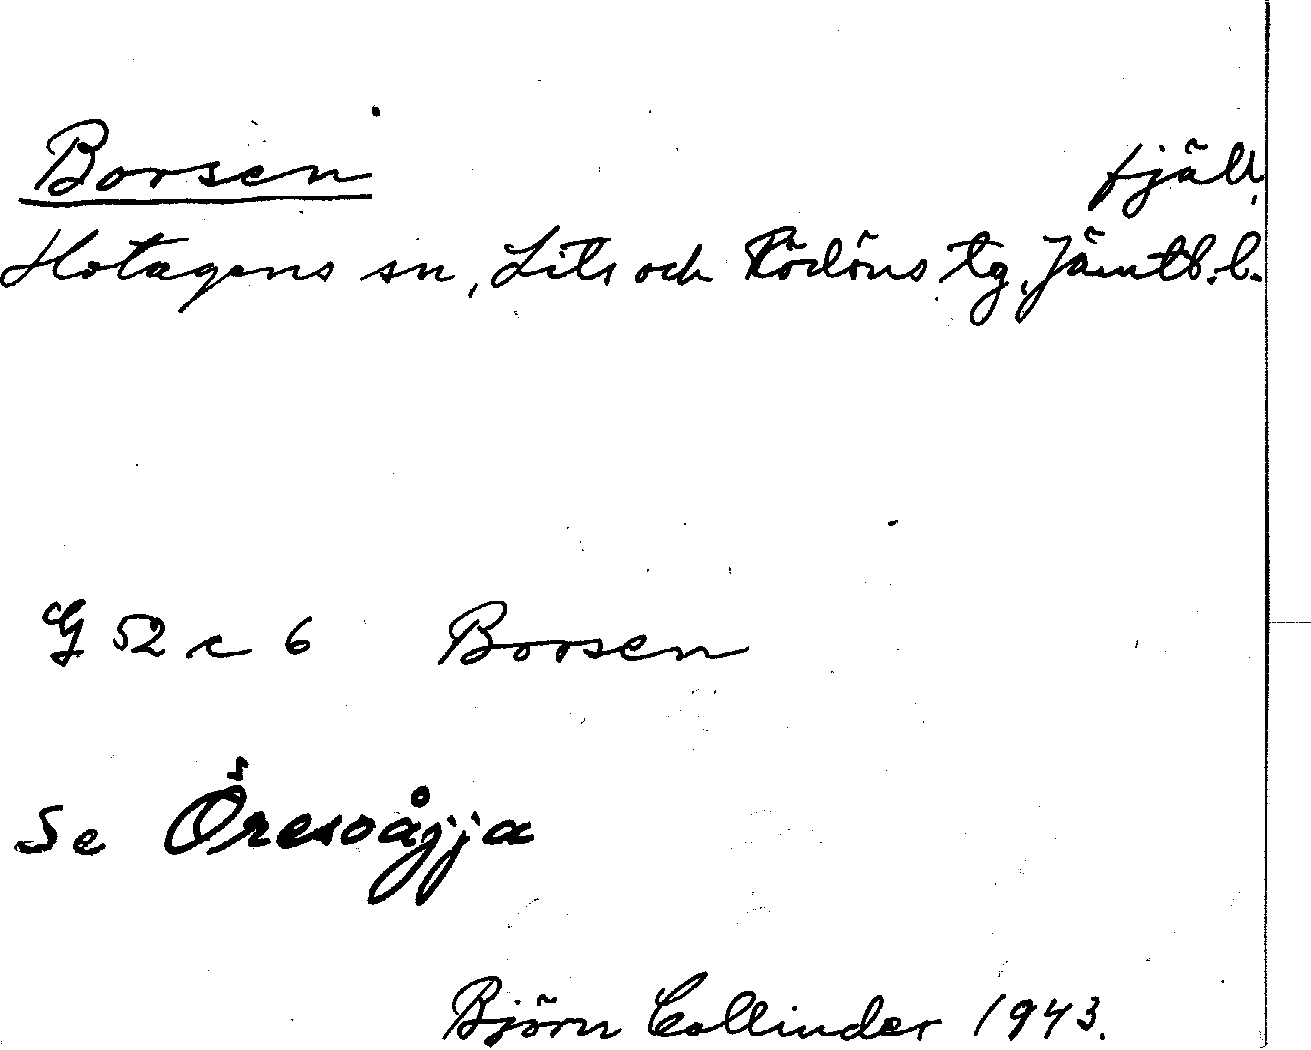 Borsen fjäll,
Hotagens sn, Lits och Rödöns tg, Jämtl.l.
G 52 c 6 Borsen
Se Öresvåjja
Björn Collinder 1943.